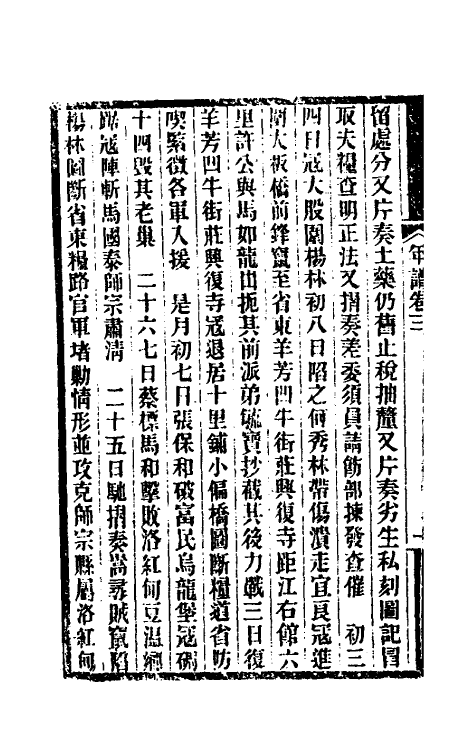 年譜卷三
留處分又片奏土藥仍舊止稅抽釐又片奏劣生私刻圖記冒
取夫糧查明正法又摺奏差委須員請飭部揀發查催　初三
四日寇大股圍楊林初八日陷之何秀林帶傷潰走宜良寇進
圍大板橋前鋒竄至省東羊芳凹牛街莊興復寺距江右館六
里許公與馬如龍出扼其前派弟毓寶抄截其後力戰三日復
羊芳凹牛街莊興復寺寇退居十里鋪小偏橋圖斷糧道省防
喫緊徵各軍入援　是月初七日張保和破富民烏龍堡寇碉
十四毀其老巢　二十六七日蔡標馬和擊敗洛紅甸豆溫鄉
寇陣斬馬國泰師宗肅清　二十五日馳摺奏嵩尋賊竄陷
楊林圖斷省東糧路官軍堵勦情形並攻克師宗縣屬洛紅甸